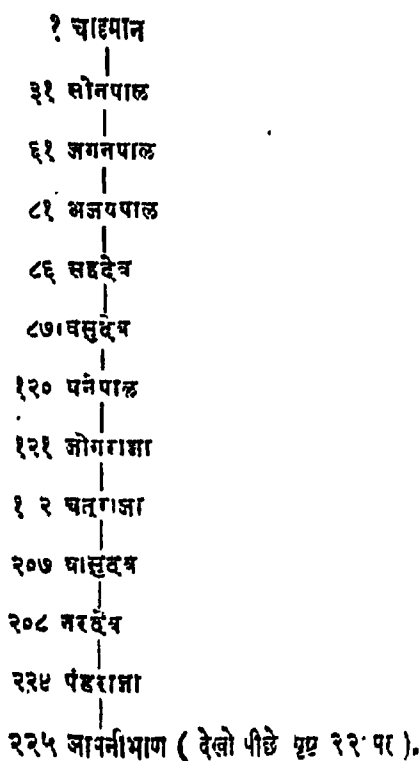 १ चाहमान
३१ सोनपाल
६१ जगनपाल
८१ अजयपाल
८६ सहदेव
८७ वसुदेव
१२० पनपाल
१२१ जोगराजा
१ २ चत्राजा
२०७ वासुदेव
२०८ नरदेव
२२४ पंहराजा
२२५ ( देखो पीछे पृष्ठ २२ पर ).